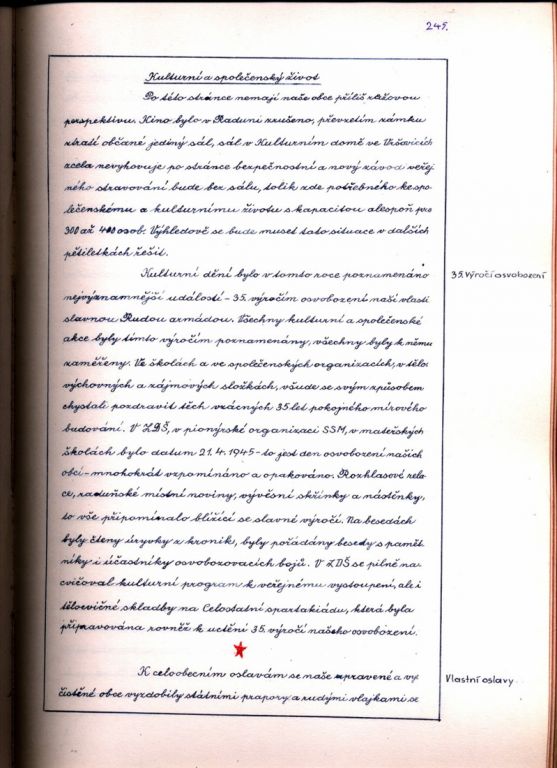 245.
Kulturní a společenský život
Po této stránce nemají naše obce příliš růžovou
perspektivu. Kino bylo v Raduni zrušeno, převzetím zámku
ztratí občané jediný sál, sál v Kulturním domě ve Vršovicích
zcela nevyhovuje po stránce bezpečnostní a nový závod veřej
ného stravování bude bez sálu, tolik zde potřebného ke spo
lečenskému a kulturnímu životu s kapacitou alespoň pro
300 až 400 osob. Výhledově se bude muset tato situace v dalších
pětiletkách řešit.
Kulturní dění bylo v tomto roce poznamenáno
35. Výročí osvobození
nejvýznamnější událostí – 35. výročím osvobození naší vlasti
slavnou Rudou armádou. Všechny kulturní a společenské
akce byly tímto výročím poznamenány, všechny byly k němu
zaměřeny. Ve školách a ve společenských organizacích, v tělo
výchovných a zájmových složkách, všude se svým způsobem
chystali pozdravit těch vzácných 35 let pokojného mírového
budování. V ZDŠ, v pionýrské organizaci SSM, v mateřských
školách bylo datum 21. 4. 1945 – to jest den osvobození našich
obcí – mnohokrát vzpomínáno a opakováno. Rozhlasové rela
ce, raduňské místní noviny, vývěsní skřínky a nástěnky,
to vše připomínalo blížící se slavné výročí. Na besedách
byly čteny úryvky z kronik, byly pořádány besedy s pamět
níky i účastníky osvobozovacích bojů. V ZDŠ se pilně na
cvičoval kulturní program k veřejnému vystoupení, ale i
tělocvičné skladby na Celostátní spartakiádu, která byla
připravována rovněž k uctění 35. výročí našeho osvobození.
K celoobecním oslavám se naše upravené a vy
Vlastní oslavy
čistěné obce vyzdobily státními prapory a rudými vlajkami se